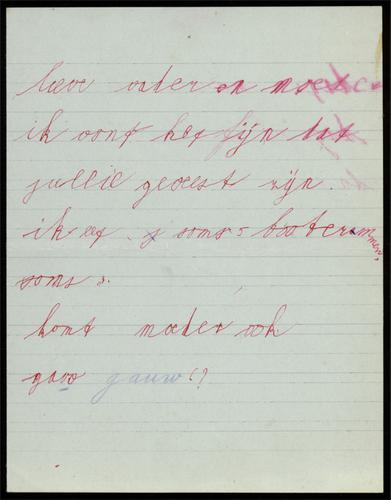 lieve vader en moeder
ik vont het fijn dat
jullie geweest zijn.
ik eet soms 5 booterammen,
soms
komt moeder ook
gaoo gauw (?